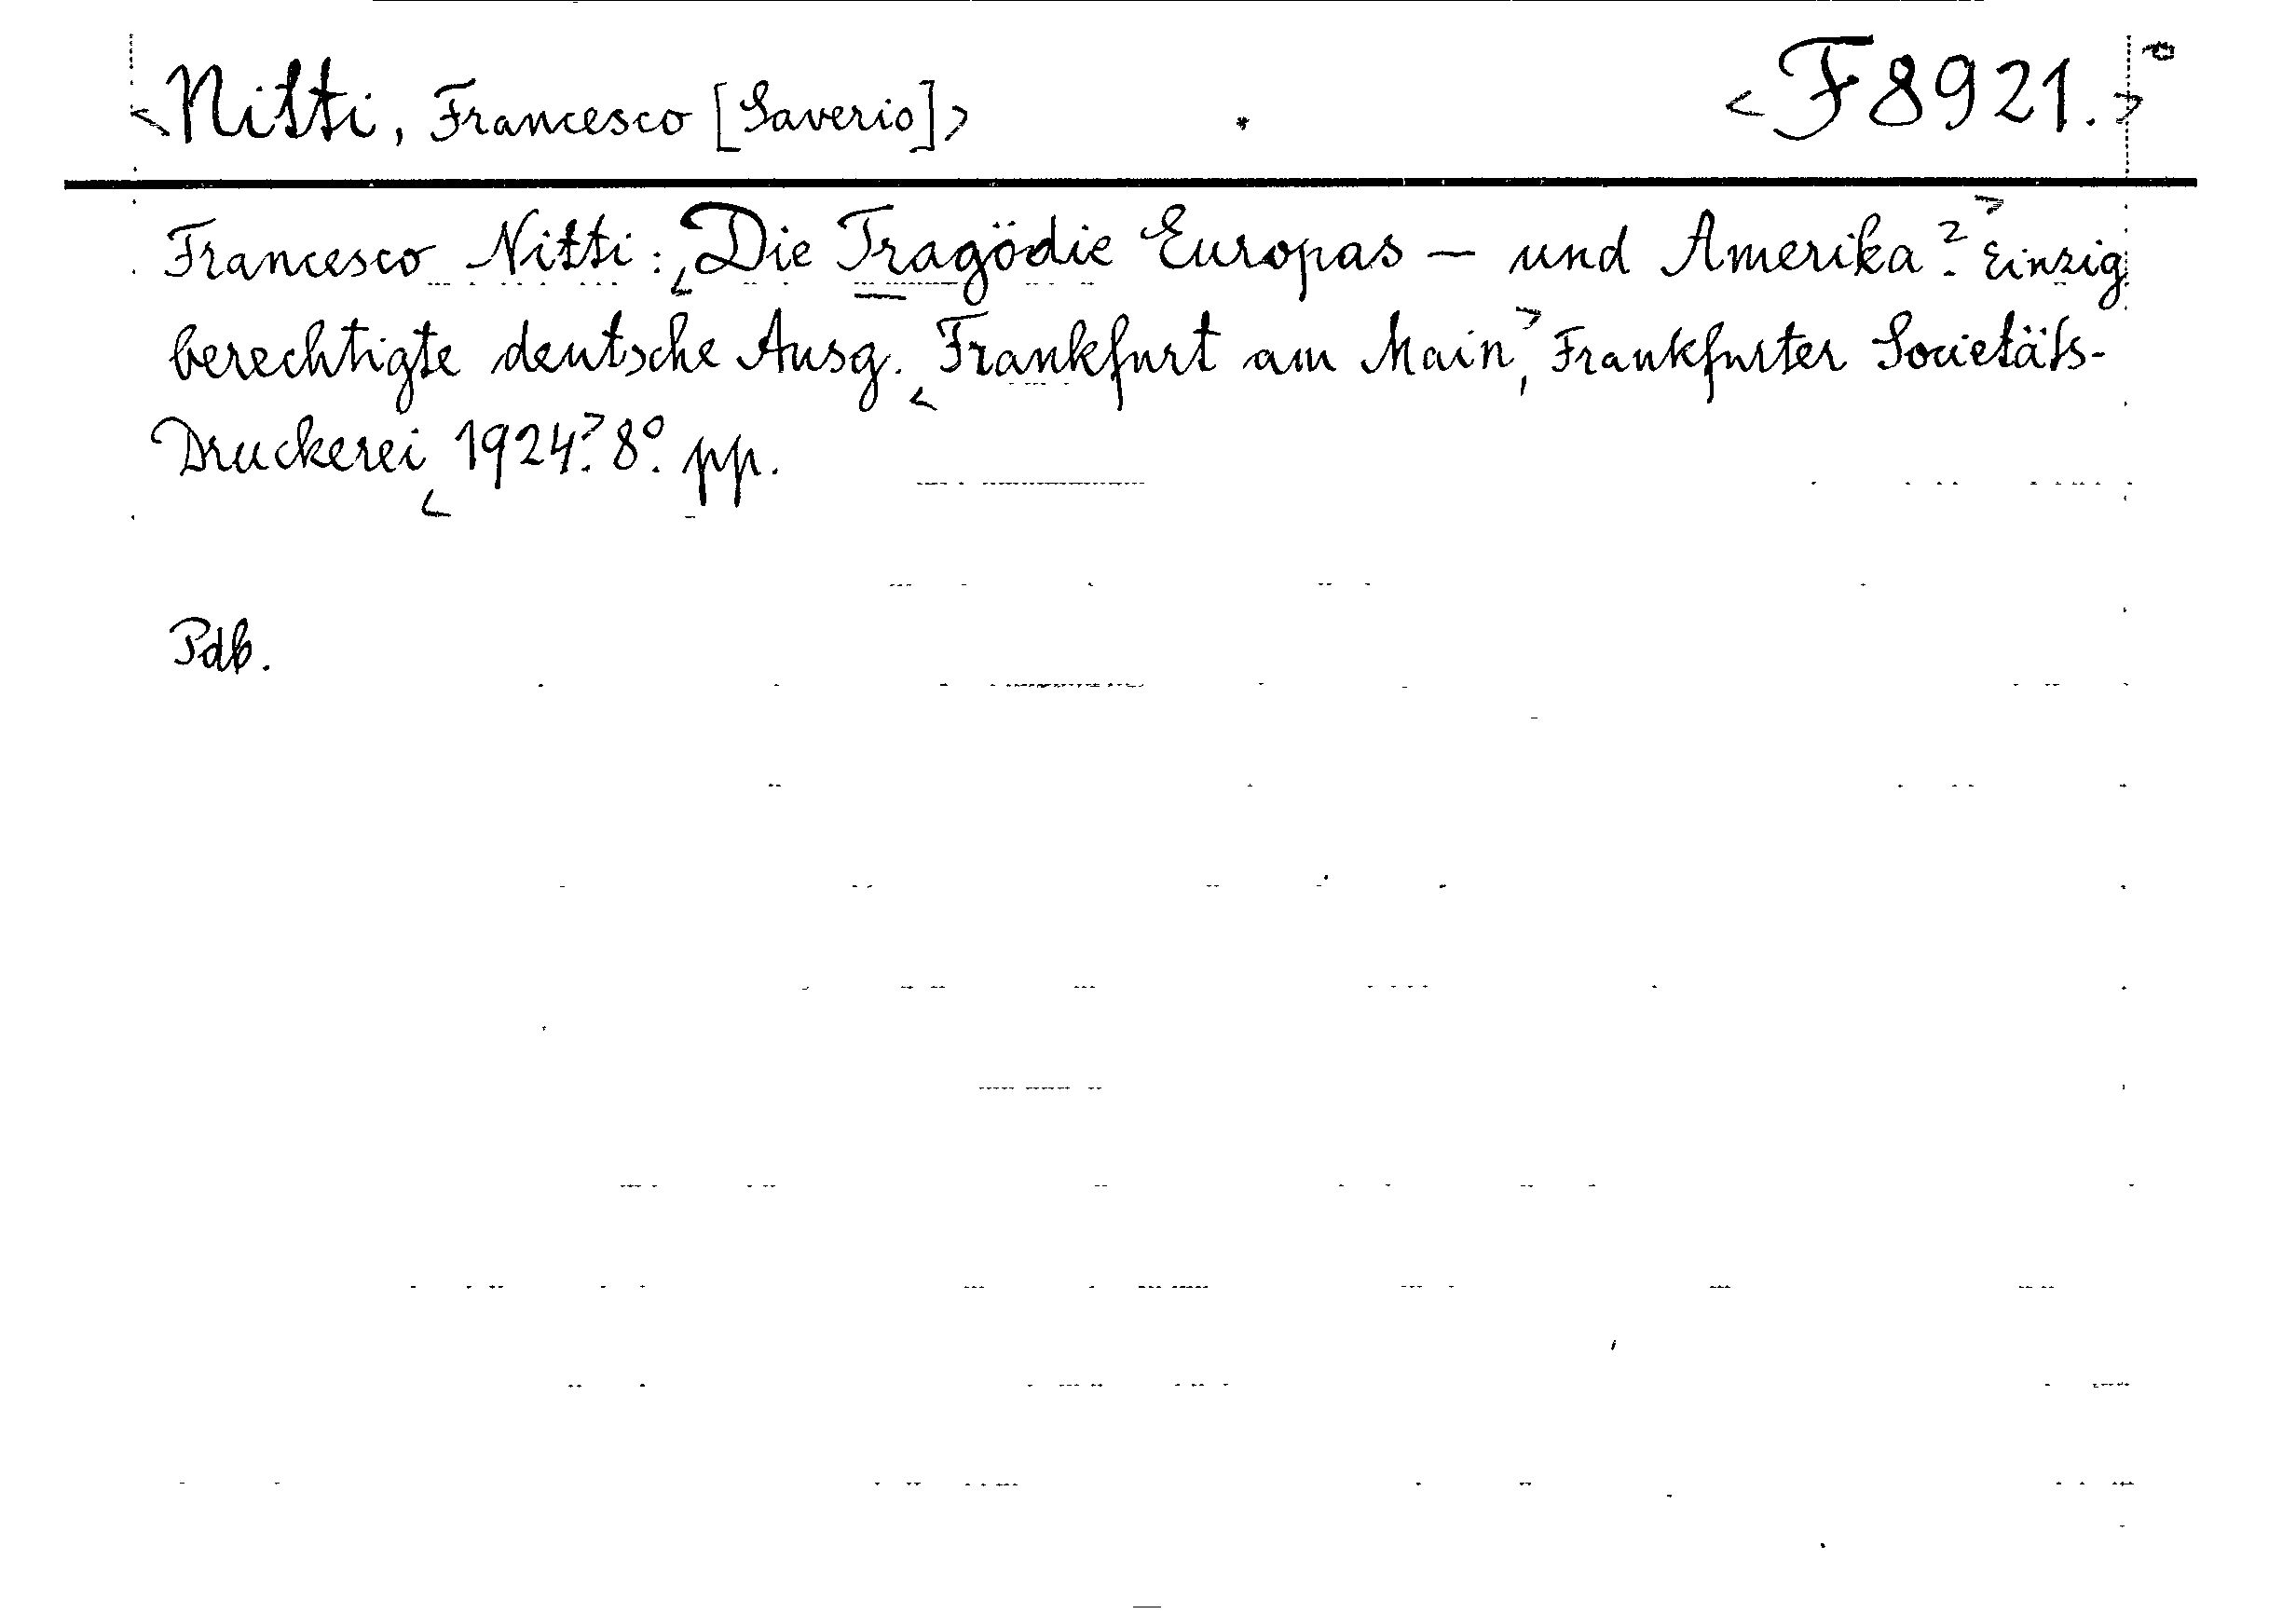 <Nitti, Francesco [Saverio]> <F 8921.>
Francesco Nitti: <Die Tragödie Europas — und Amerika?> Einzig
berechtigte deutsche Ausg. <Frankfurt am Main>, Frankfurter Societäts-
Druckerei <1924>. 8°. pp.
Pdb.